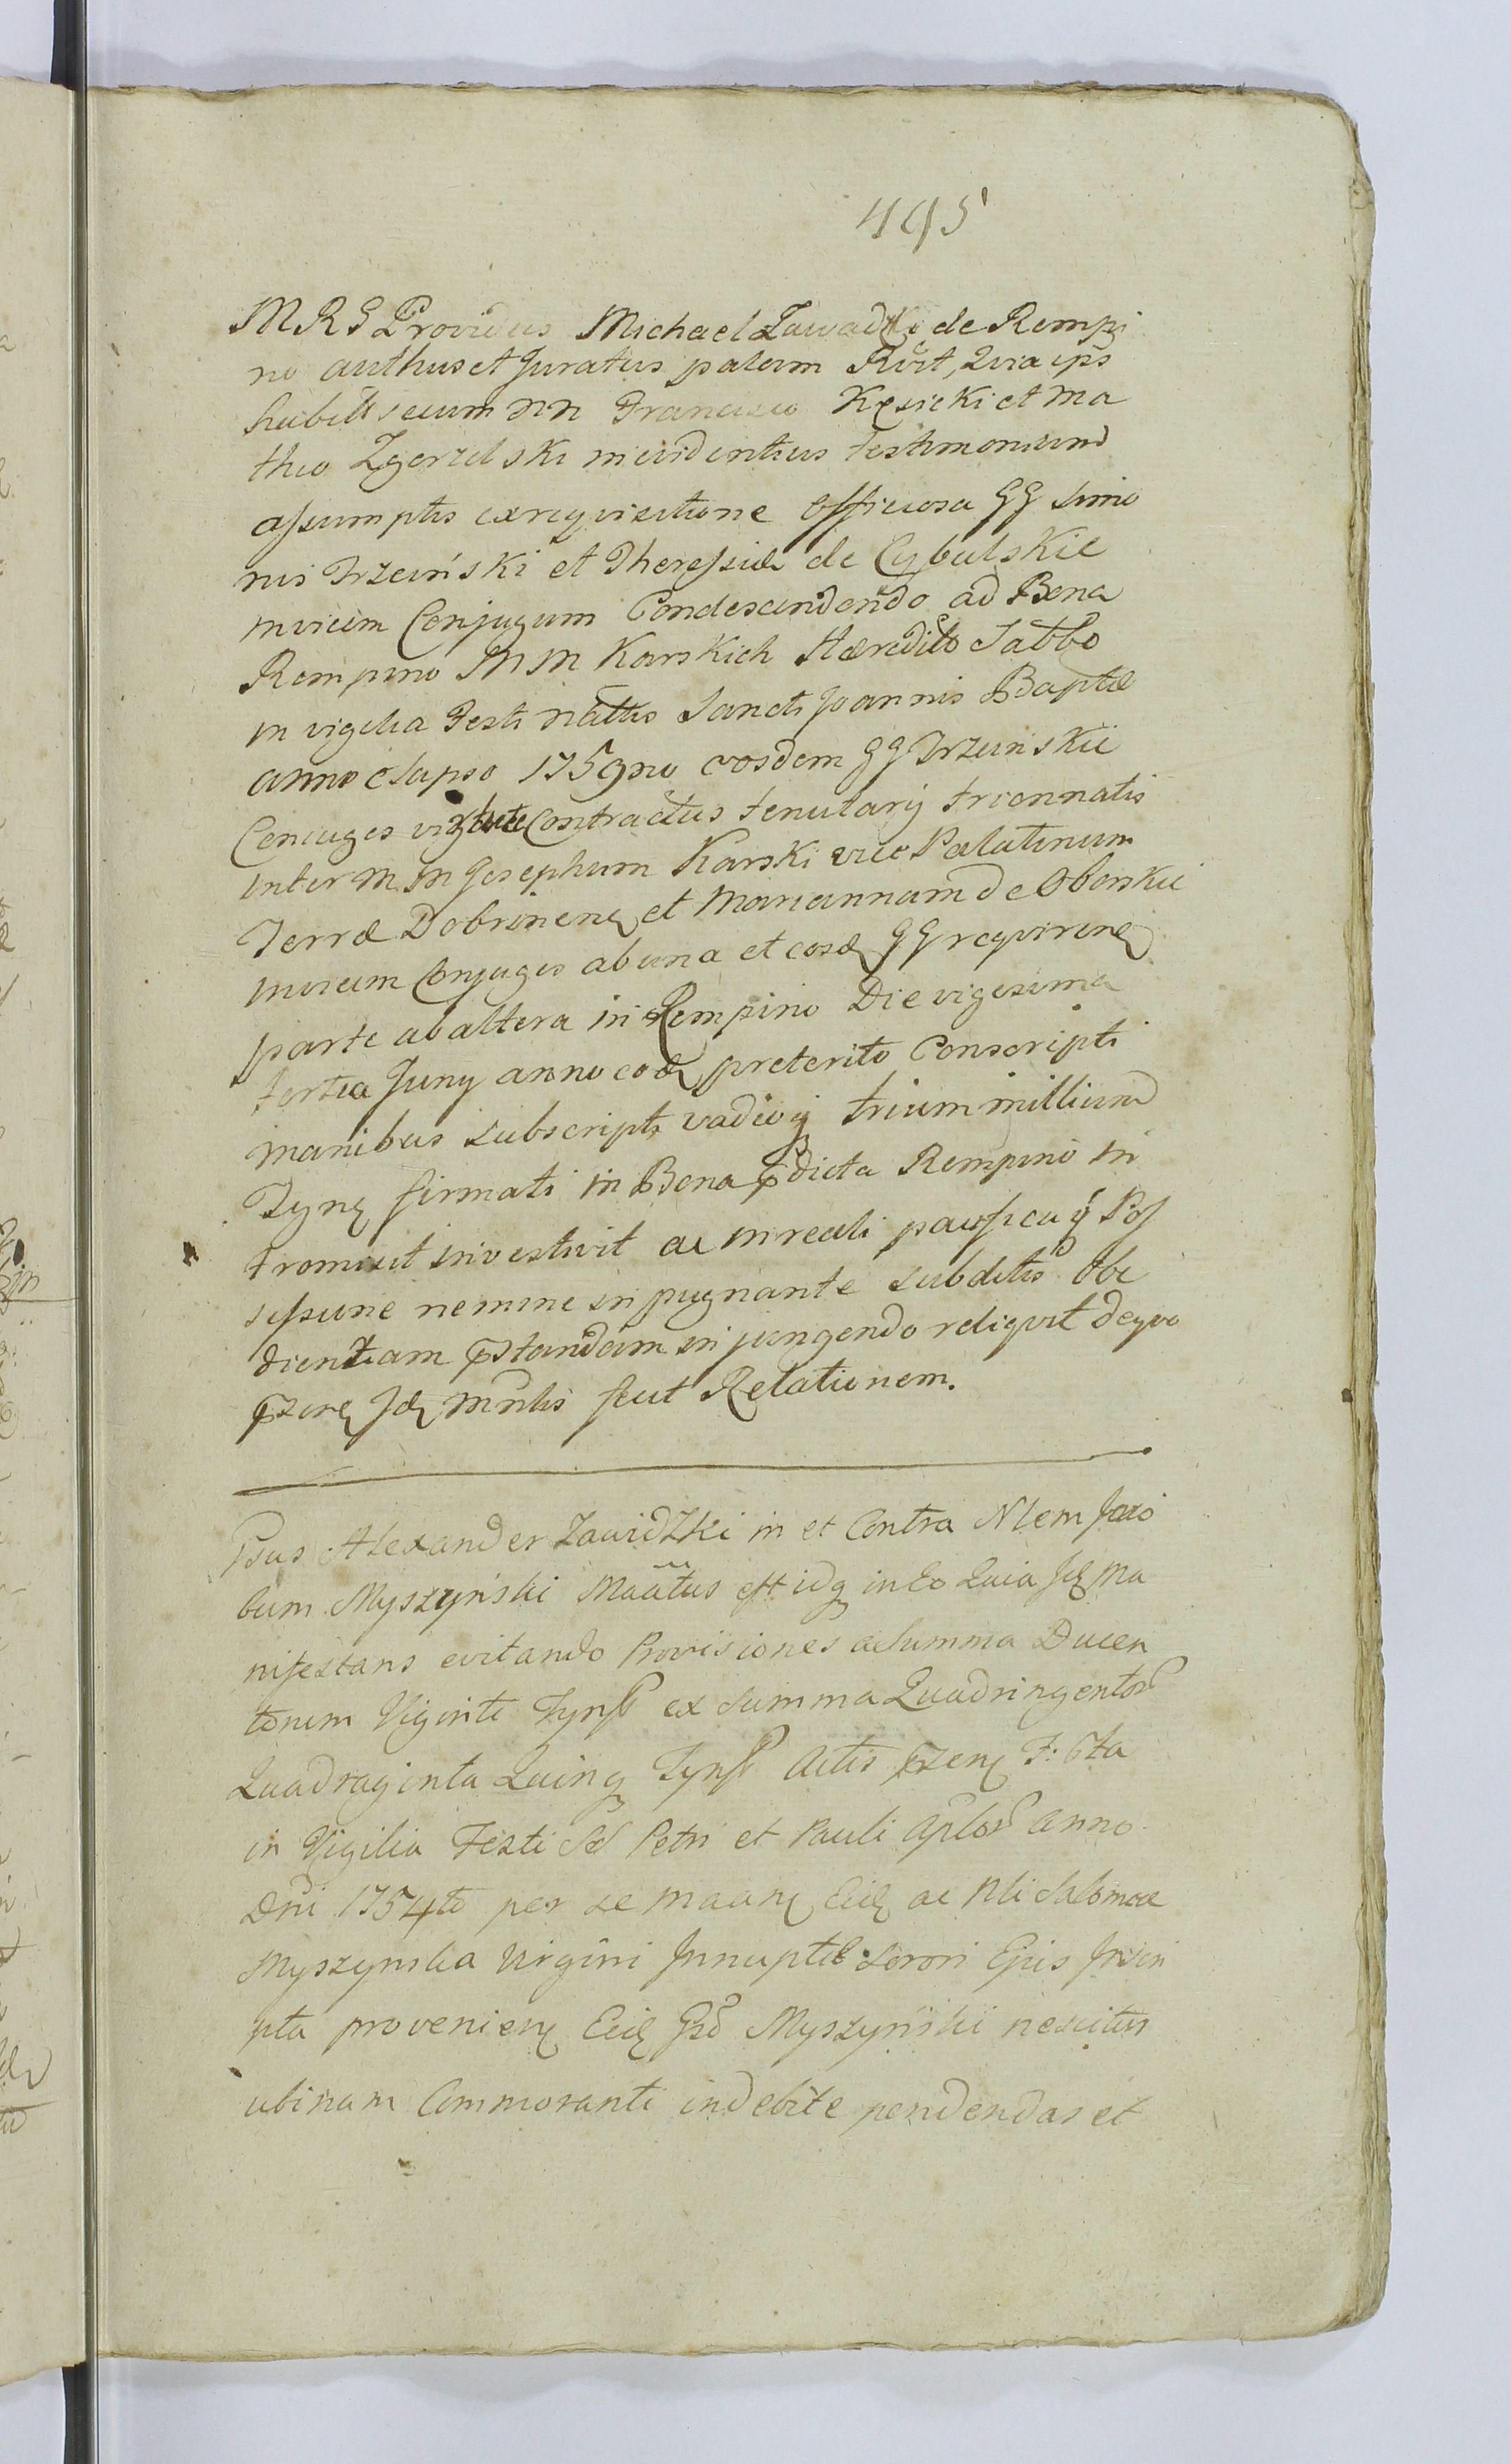 495
MRS Providus Michael Zawadzki de Rempi
no authus et Juratus palam Rvit, Quia ips
habitis secum NN Francisco Kęsicki et Ma
theo Zgorzelski in evidentius testimonium
assumptis ex requisitione officiosa GG Simo
nis Trzciński et Theressiæ de Cybulskie
invicem Conjugum Condescendendo ad Bona
Rempino MM Karskich Hæredit Sabbo
in vigilia Festi natttis Sancti Joannis Baptæ
anno elapso 1759no eosdem GG Trzcinskie
Coniuges vigtute Contractus tenutarij triennalis
inter MM Josephum Karski vice Palatinum
Terræ Dobrinenę et Mariannam de Oborskie
invicem Conjuges ab una et eosdę GG reqvirenę
parte ab altera in Rempino Die vigesima
tertia Juny anno eodę preterito Conscripti
manibus subscripti vadioq trium millium
Tynę firmati in Bona pdicta Rempino in
tromisit investivit ac in reali pacificaq Pos
sessione nemine inpugnante subditis Obe
dientiam pstandam injungendo reliqvit de qvo
przenę Jdę mnlis fecit Relationem.
Psus Alexander Zawidzki in et Contra Nlem Jaco
bum Myszyński Maãtus est idq in Eo Quia Jdę Ma
nifestans evitando Provisiones a Summa Ducen
torum Viginti Tynf ex Summa Quadringentor
Quadraginta Quinq Tynf Actis przenę F: 6ta
in Vigilia Festi SS Petri et Pauli Aplor Anno
Dni 1754to per se maanę Eidę ac Nli Salomeæ
Myszynska Virgini Innuptæ Sorori Ejus Inscri
pta provenienę Eidę Gso Myszyński nescitur
ubinam Commoranti indebite pendendas et